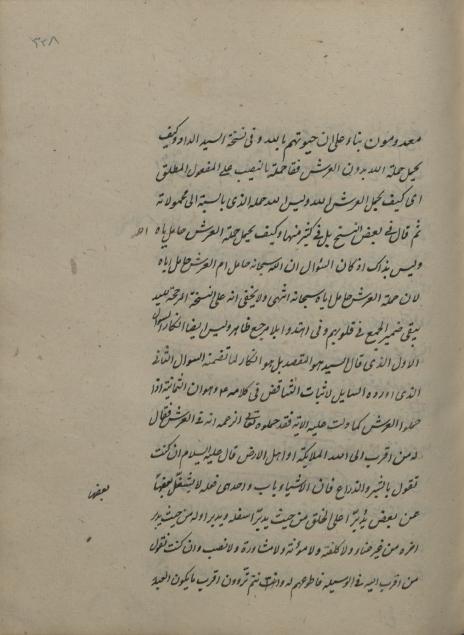 ٣٣٨
معدومون بناء على ان حيوتهم بالله وفى نسخة السيد الداود كيف
يحمل حملة الله بدون العرش فقا حملة بالنصب على المفعول المطلق
اى كيف يحمل العرش الله وليس الله حمله الذى بالنسبة الى محمولاته
ثم قال فى بعض النسخ بل فى كثير منها وكيف يحمل حملة العرش حامل اياه اهـ
وليس بذاك اذ كان السؤال ان الله سبحانه حامل ام العرش حامل اياه
لان حملة العرش حامل اياه سبحانه انتهى ولا يخفى انه على النسخة المرجحة عليه
يبقى ضمير الجمع فى قلوبهم وفى اهتدوا بلا مرجع ظاهر وليس ايضا انكار السؤال
الاول الذى قال السيد هو المقصد بل هو انكار لما تضمنه السوال الثانى
الذى اورده السايل لاثبات التناقض فى كلامه ع وهو ان الثمانية اذا
حملوا العرش كما دلت عليه الاية فقد حملوه تعالى لزعمه انه فى العرش فقال
له من اقرب الى الله الملايكة او اهل الارض قال عليه السلام ان كنت
تقول بالشبر والذراع فان الاشياء باب واحد هى فعله لا يشتغل ببعضها بعضها
عن بعض يدبر اعلى الخلق من حيث يدبر اسفله ويدبر اوله من حيث يدبر
اخره من غير عناء ولا كلفة ولا مؤنة ولا مشاورة ولا نصب وان كنت تقول
من اقرب اليه فى الوسيلة فاطوعهم له وانتم تروون اقرب ما يكون العبد